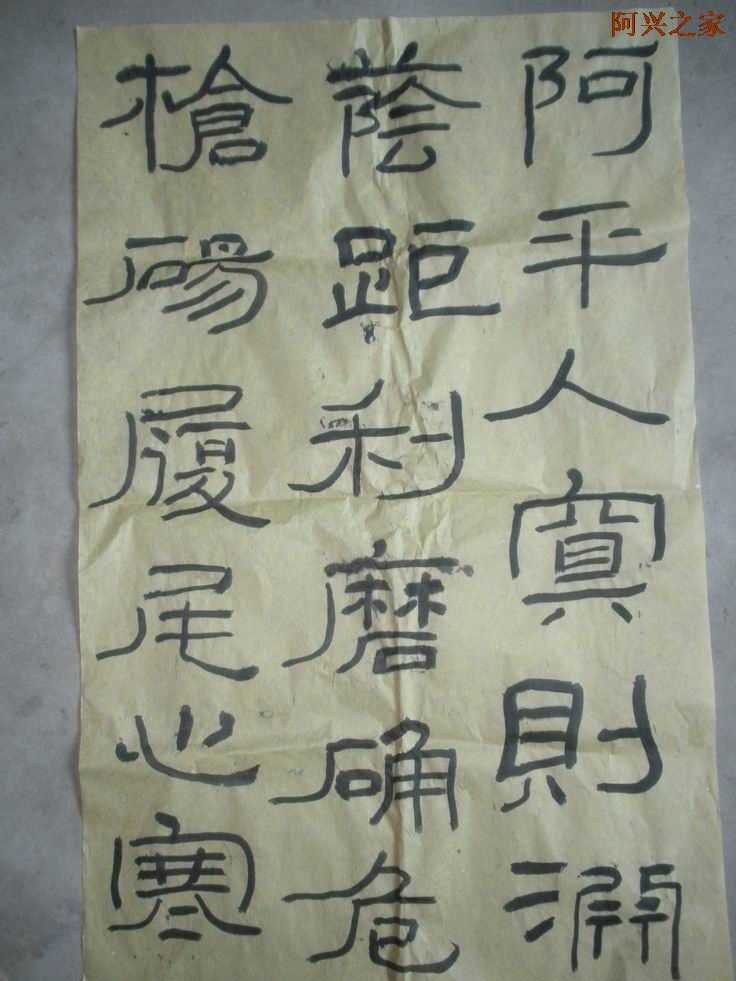 阿兴之家
阿平人冥則淵
蔭距利磨确危
槍碭履尾心寒